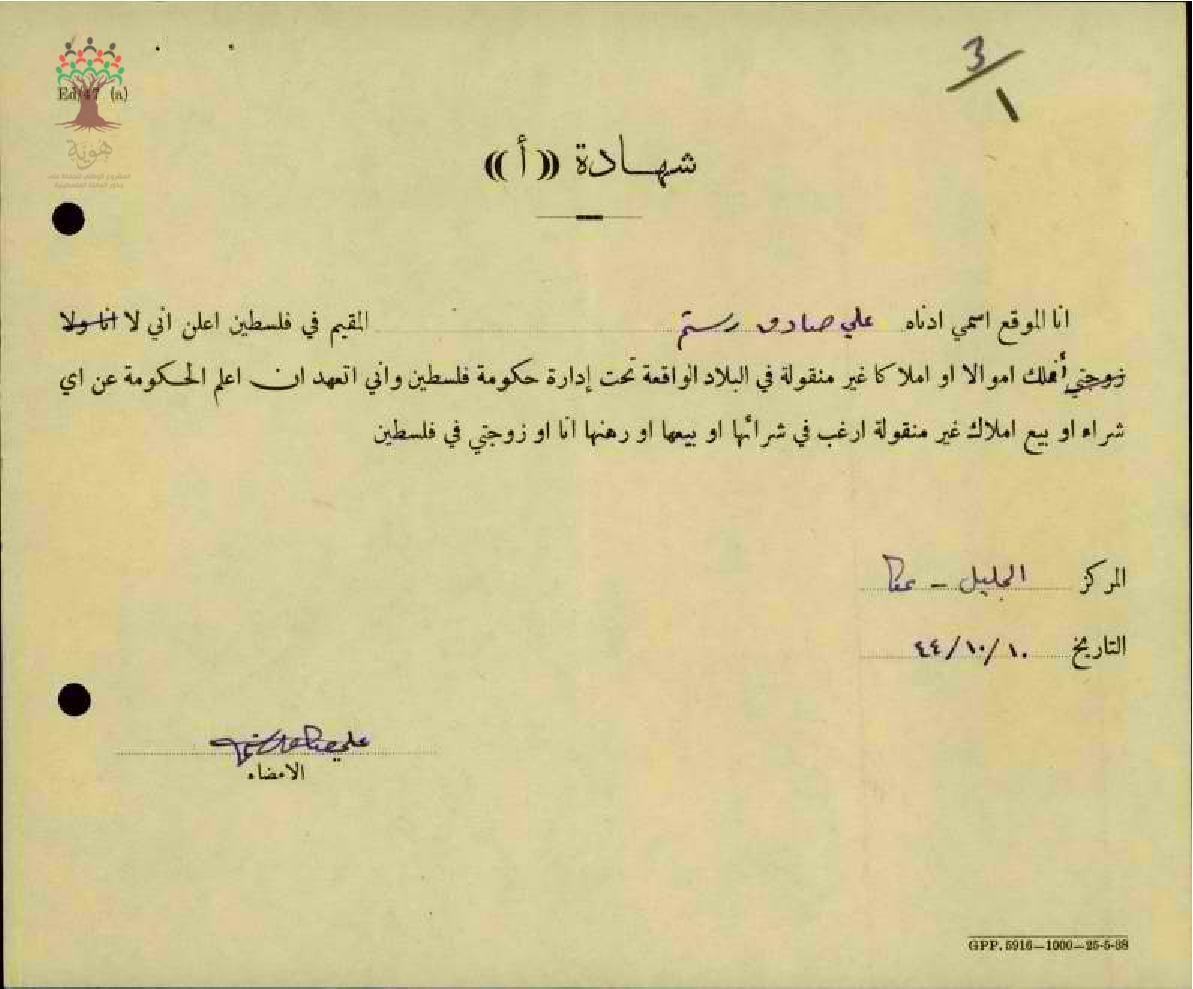 3/1
Ed/47 (a)
هوية
شهادة ((أ))
انا الموقع اسمي ادناه علي صادق رستم المقيم في فلسطين اعلن اني لا انا ولا
زوجتي أملك اموالا او املاكا غير منقولة في البلاد الواقعة تحت إدارة حكومة فلسطين واني اتعهد ان اعلم الحكومة عن اي
شراء او بيع املاك غير منقولة ارغب في شرائها او بيعها او رهنها انا او زوجتي في فلسطين
المركز الجليل - عكا
التاريخ ٤٤/١٠/١٠
الامضاء
GPP. 5916—1000—25-5-38